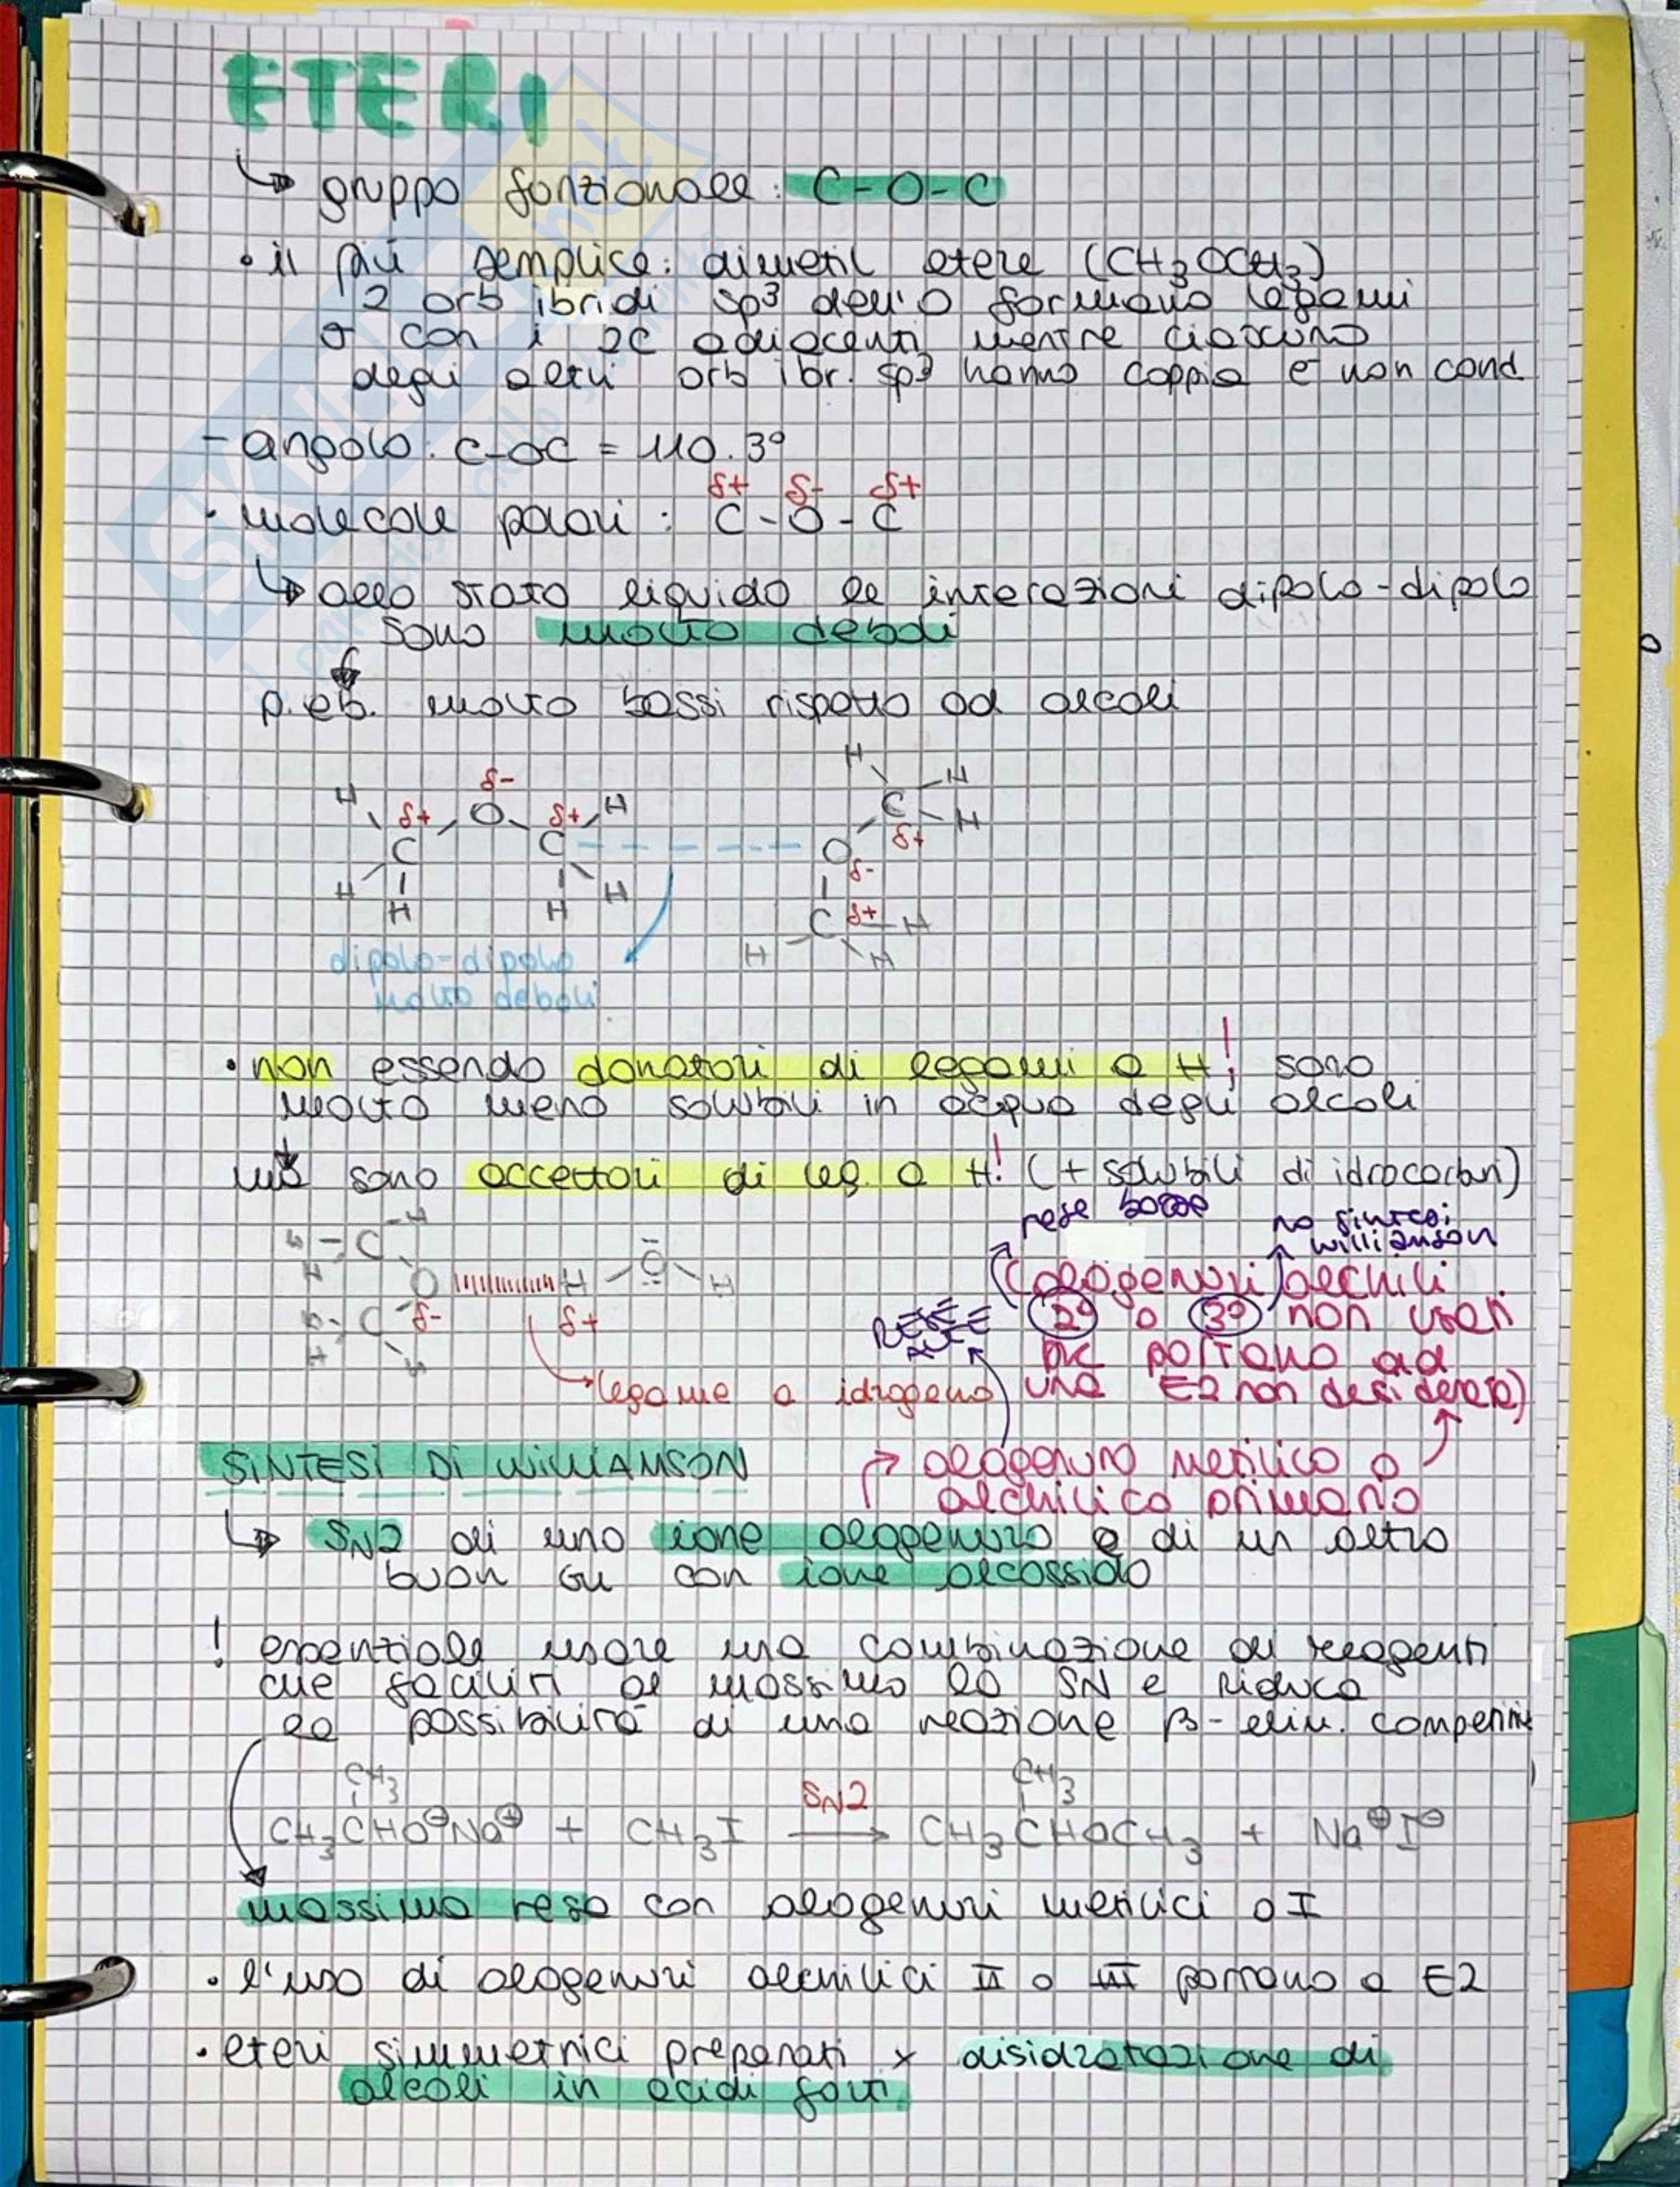 ETERI
↳ gruppo funzionale: C-O-C
• il più semplice: dimetil etere (CH3OCH3)
2 orb ibridi sp3 dell'O formano legami
σ con i 2C adiacenti mentre ciascuno
degli altri orb ibr. sp3 hanno coppia e- non cond
- angolo: C-OC = 110.3°
δ+ δ- δ+
• molecole polari: C-O-C
↳ allo stato liquido le interazioni dipolo-dipolo
sono molto deboli
p. eb. molto bassi rispetto ad alcoli
H H
H δ- C H
δ+ O δ+ H δ+
C C O
H H H H δ-
C δ+ H
H H
dipolo-dipolo
molto deboli
• non essendo donatori di legami a H! sono
molto meno solubili in acqua degli alcoli
ma sono accettori di leg. a H! (+ solubili di idrocarburi)
rese basse
no sintesi
williamson
H C H
H O H O H
H C δ- δ+
H H
(alogenuri alchili
2° o 3° non usati
pk portano ad
una E2 non desiderata)
RESE
legame a idrogeno
SINTESI DI WILLIAMSON
→ alogenuro metilico o
alchilico primario
↳ SN2 di uno ione alogenuro o di un altro
buon GU con ione alcossido
! essenziale usare una combinazione di reagenti
che faciliti al massimo la SN e riduca
la possibilità di una reazione β-elim. competitiva
CH3 CH3
CH3CHO⊖Na⊕ + CH3I SN2 → CH3CHOCH3 + Na⊕I⊖
massima resa con alogenuri metilici o I
• l'uso di alogenuri alchilici II o III portano a E2
• eteri simmetrici preparati x disidratazione di
alcoli in acidi forti